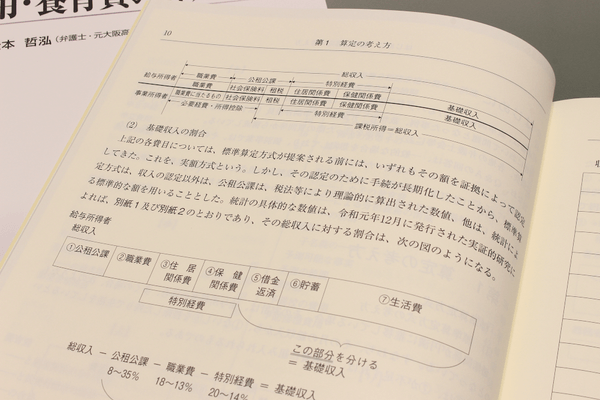 用・養育費の
本 哲泓(弁護士・元大阪高
10
第1 算定の考え方
総収入
職業費 公租公課 特別経費
給与所得者 職業費 社会保険料 租税 住居関係費 保健関係費 基礎収入
事業所得者 職業費に当たるもの 社会保険料 租税 住居関係費 保健関係費 基礎収入
必要経費・所得控除 特別経費
課税所得=総収入
(2) 基礎収入の割合
上記の各費目については、標準算定方式が提案される前には、いずれもその額を証拠によって認定
してきた。これを、実額方式という。しかし、その認定のために手続が長期化したことから、標準算
定方式は、収入の認定以外は、公租公課は、税法等により理論的に算出された数値、他は、統計によ
る標準的な額を用いることとした。統計の具体的な数値は、令和元年12月に発行された実証的研究に
よれば、別紙1及び別紙2のとおりであり、その総収入に対する割合は、次の図のようになる。
給与所得者
総収入
①公租公課 ②職業費 ③住居関係費 ④保健関係費 ⑤借金返済 ⑥貯蓄 ⑦生活費
特別経費
この部分を分ける
=基礎収入
総収入 − 公租公課 − 職業費 − 特別経費 = 基礎収入
8〜35% 18〜13% 20〜14%